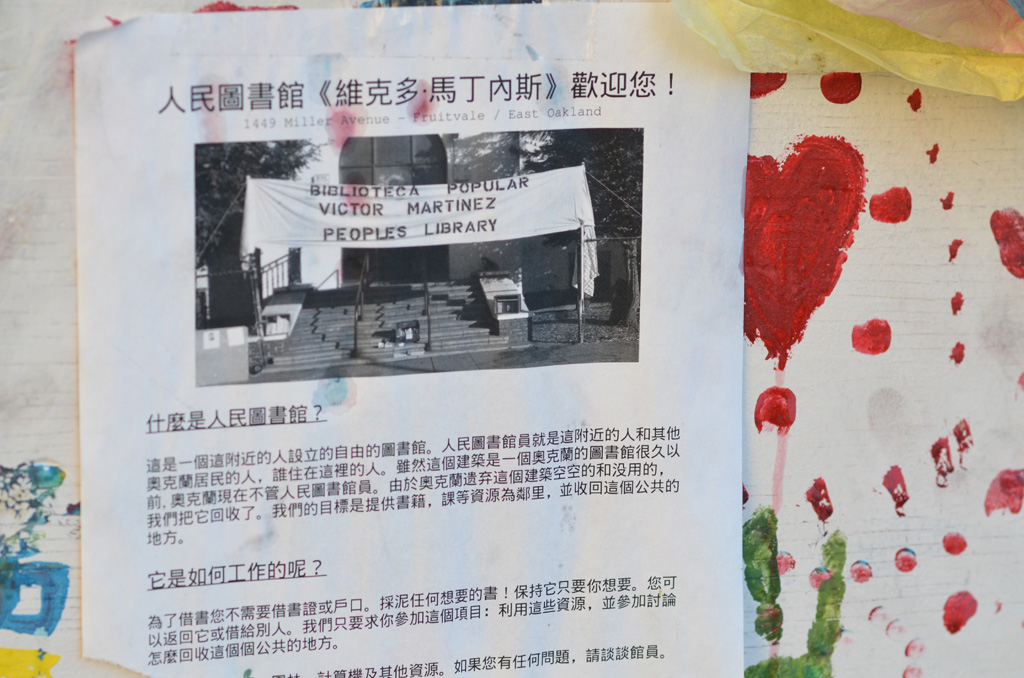 人民圖書館《維克多·馬丁內斯》歡迎您！
1449 Miller Avenue - Fruitvale / East Oakland
BIBLIOTECA POPULAR
VICTOR MARTINEZ
PEOPLES LIBRARY
什麼是人民圖書館？
這是一個這附近的人設立的自由的圖書館。人民圖書館員就是這附近的人和其他
奧克蘭居民的人，誰住在這裡的人。雖然這個建築是一個奧克蘭的圖書館很久以
前, 奧克蘭現在不管人民圖書館員。由於奧克蘭遺弃這個建築空空的和没用的，
我們把它回收了。我們的目標是提供書籍，課等資源為鄰里，並收回這個公共的
地方。
它是如何工作的呢？
為了借書您不需要借書證或戶口。採泥任何想要的書！保持它只要你想要。您可
以返回它或借給別人。我們只要求你參加這個項目：利用這些資源，並參加討論
怎麼回收這個個公共的地方。
計算機及其他資源。如果您有任何問題，請談談館員。